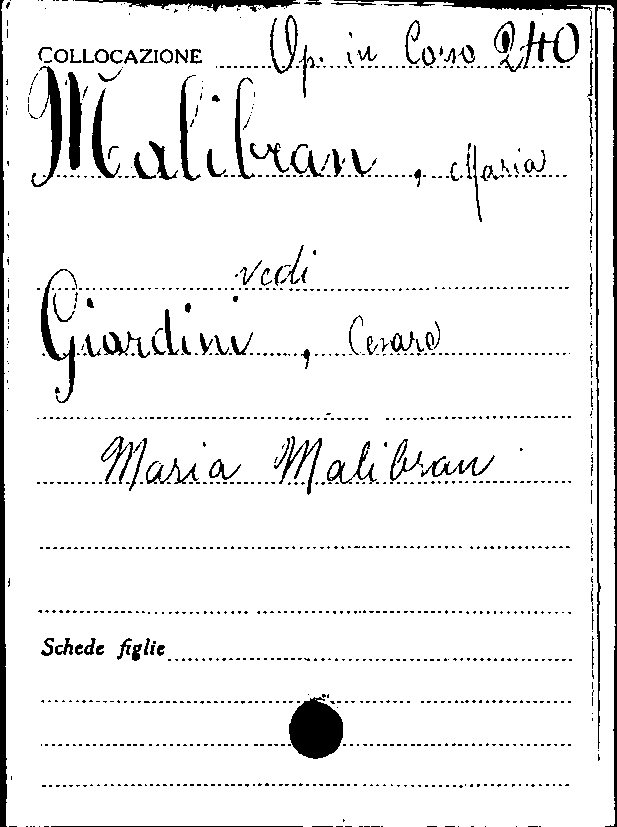 COLLOCAZIONE Op. in Corso 240
Malibran, Maria
vedi
Giardini, Cesare
Maria Malibran
Schede figlie